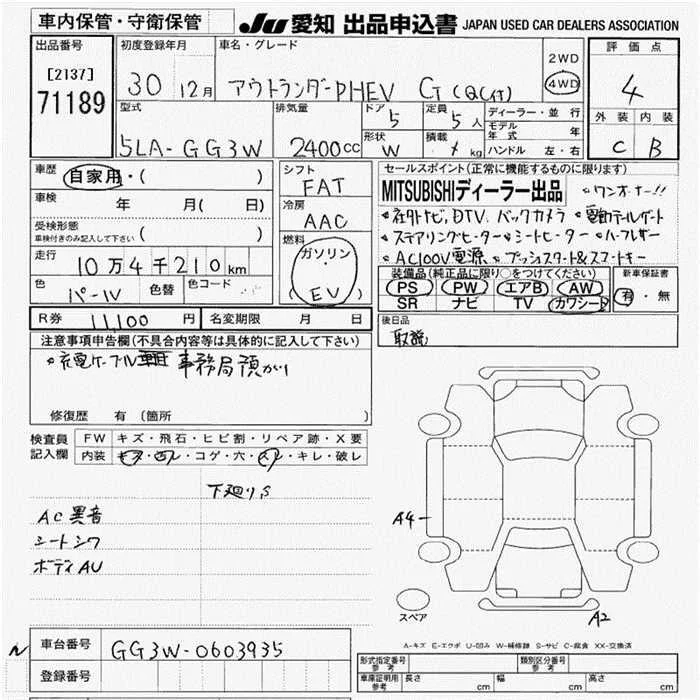 車内保管・守衛保管 JU 愛知 出品申込書 JAPAN USED CAR DEALERS ASSOCIATION
出品番号 初度登録年月 車名・グレード 評価点
[2137] 71189 30 12月 アウトランダーPHEV G (QC付) 2WD 4WD 4
型式 排気量 ドア 5 定員 5人 ディーラー・並行 外装 内装
5LA-GG3W 2400cc 形状 W 積載 kg モデル年式 年 C B
ハンドル 左・右
車歴 自家用・( ) シフト FAT セールスポイント(正常に機能するものに限ります)
車検 年 月( 日) 冷房 AAC MITSUBISHIディーラー出品 ・ワンオーナー!!
・社外ナビ、DTV、バックカメラ ・電動テールゲート
受検形態 車検付きのみ記入して下さい ( ) 燃料 ガソリン (EV) ・ステアリングヒーター・シートヒーター ・ハーフレザー
走行 10万4千210km ・AC100V電源 ・プッシュスタート&スマートキー
色 パールV 色替 色コード 装備品(純正品に限り○をつけてください) 新車保証書
PS PW エアB AW 有・無
SR ナビ TV カワシート
R券 11,100円 名変期限 月 日 後日品
取説
注意事項申告欄(不具合内容等は具体的に記入して下さい)
・充電ケーブル 事務局預かり
修復歴 有 (箇所 )
検査員記入欄 FW キズ・飛石・ヒビ割・リペア跡・X要
内装 キズ・凹レ・コゲ・穴・スレ・キレ・破レ
下廻りS
AC異音
シートシワ
ボディAU
A4
スペア
A2
A-キズ E-エクボ U-凹み W-補修跡 S-サビ C-腐食 XX-交換済
車台番号 GG3W-0603935
登録番号
形式指定番号 参考 類別区分番号 参考
車庫証明用 参考 長さ cm 幅 cm 高さ cm